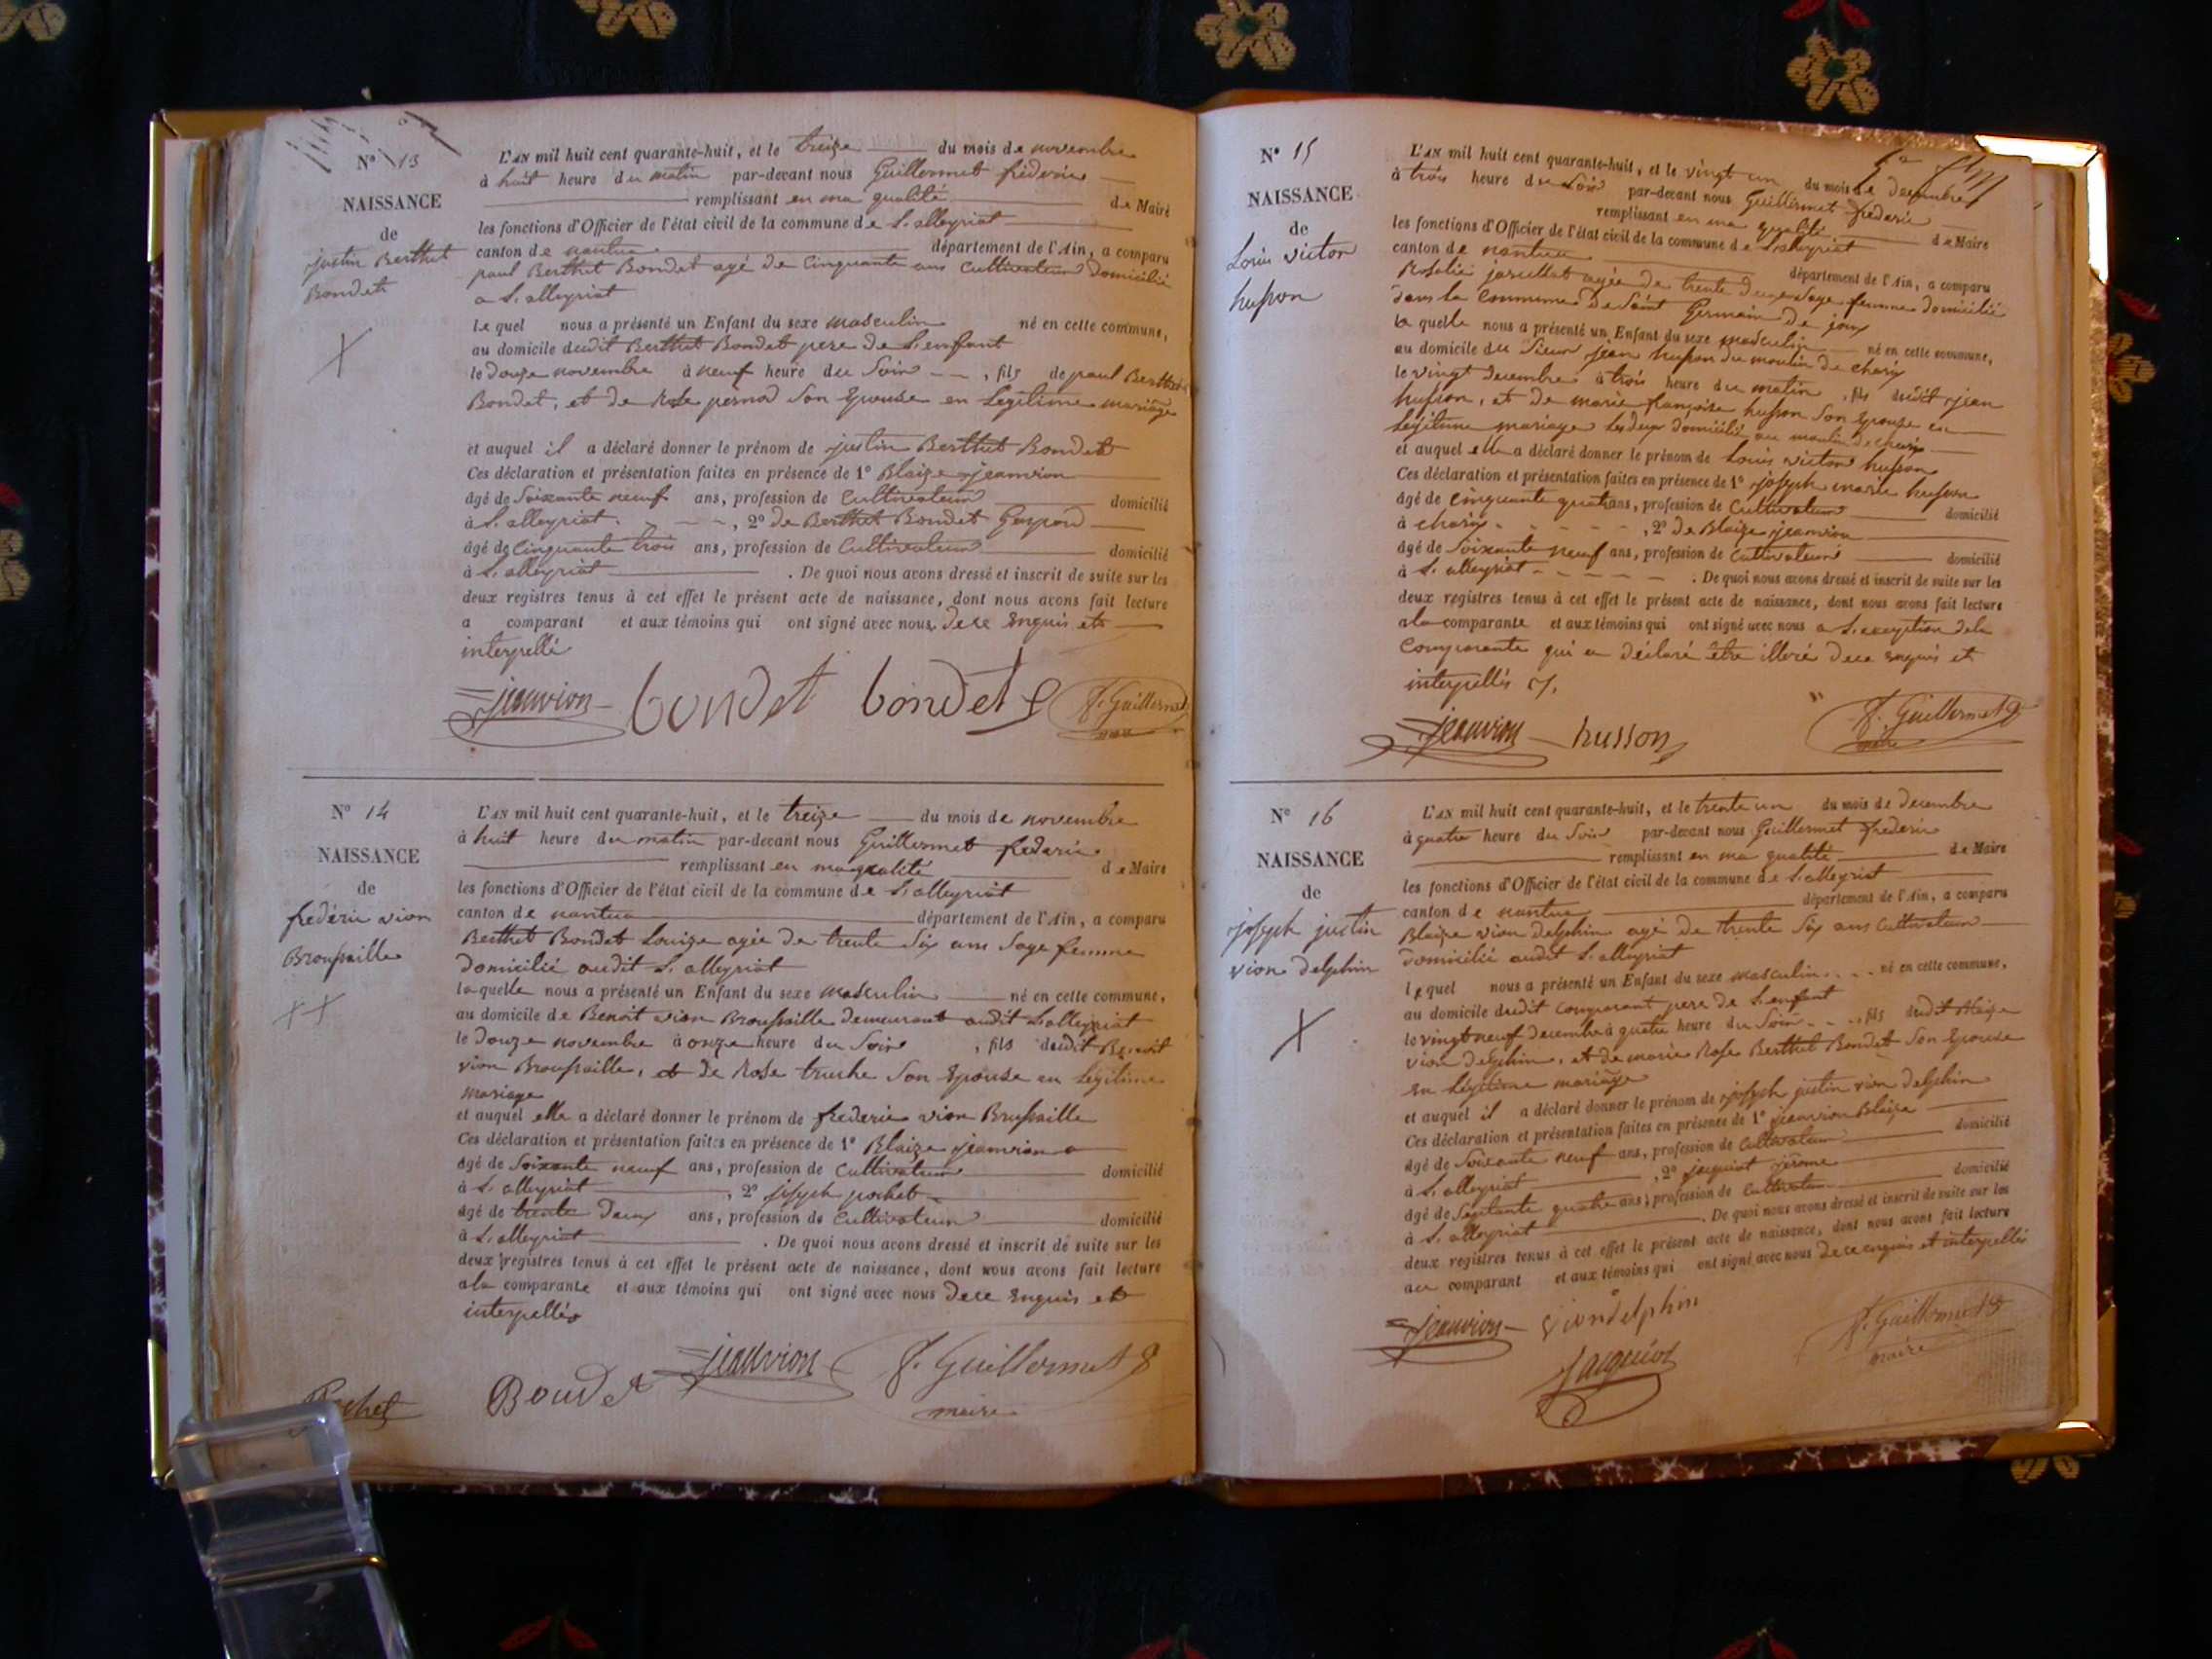 N° 13
NAISSANCE
de
justin Berthet
Bondet
L'AN mil huit cent quarante-huit, et le treize du mois de novembre
à huit heure du matin par-devant nous Guillermet frédéric
remplissant en ma qualité de Maire
les fonctions d'Officier de l'état civil de la commune de S. alleyriat
canton de nantua département de l'Ain, a comparu
paul Berthet Bondet agé de cinquante ans cultivateur domicilié
a S. alleyriat
lequel nous a présenté un Enfant du sexe masculin né en cette commune,
au domicile dudit Berthet Bondet pere de l'enfant
le douze novembre à neuf heure du soir, fils de paul Berthet
Bondet, et de Rose pernod son Epouse en Legitime mariage
et auquel il a déclaré donner le prénom de justin Berthet Bondet
Ces déclaration et présentation faites en présence de 1° Blaize jeanvion
âgé de soixante neuf ans, profession de cultivateur domicilié
à S. alleyriat, 2° de Berthet Bondet Gaspard
âgé de cinquante trois ans, profession de cultivateur domicilié
à S. alleyriat. De quoi nous avons dressé et inscrit de suite sur les
deux registres tenus à cet effet le présent acte de naissance, dont nous avons fait lecture
a comparant et aux témoins qui ont signé avec nous de ce enquis et
interpellé
jeanvion bondet bondet f. Guillermet
N° 14
NAISSANCE
de
frédéric vion
Broussaille
L'AN mil huit cent quarante-huit, et le treize du mois de novembre
à huit heure du matin par-devant nous Guillermet frederic
remplissant en ma qualité de Maire
les fonctions d'Officier de l'état civil de la commune de S. alleyriat
canton de nantua département de l'Ain, a comparu
Berthet Bondet Louize agée de trente six ans sage femme
domicilié audit S. alleyriat
laquelle nous a présenté un Enfant du sexe masculin né en cette commune,
au domicile de Benoit vion Broussaille demeurant audit S. alleyriat
le douze novembre à onze heure du soir, fils dudit Benoit
vion Broussaille, et de Rose truche son Epouse en Legitime
mariage
et auquel elle a déclaré donner le prénom de frederic vion Brussaille
Ces déclaration et présentation faites en présence de 1° Blaize jeanvion
âgé de soixante neuf ans, profession de cultivateur domicilié
à S. alleyriat, 2° joseph pochet
âgé de trente deux ans, profession de cultivateur domicilié
à S. alleyriat. De quoi nous avons dressé et inscrit de suite sur les
deux registres tenus à cet effet le présent acte de naissance, dont nous avons fait lecture
a la comparante et aux témoins qui ont signé avec nous de ce enquis et
interpellés
Bondet jeanvion f. Guillermet
maire
N° 15
NAISSANCE
de
Louis victor
husson
L'AN mil huit cent quarante-huit, et le vingt un du mois de decembre
à trois heure du soir par-devant nous Guillermet frederic
remplissant en ma qualité de Maire
les fonctions d'Officier de l'état civil de la commune de S. alleyriat
canton de nantua département de l'Ain, a comparu
Rosalie agée de trente sage femme domicilié
dans la commune de Saint Germain de joux
laquelle nous a présenté un Enfant du sexe masculin né en cette commune,
au domicile du Sieur jean husson du moulin de charix
le vingt decembre à trois heure du matin, fils dudit jean
husson, et de marie françoise husson son Epouse en
Legitime mariage les deux domicilié au moulin de charix
et auquel elle a déclaré donner le prénom de Louis victor husson
Ces déclaration et présentation faites en présence de 1° joseph marie husson
âgé de cinquante quatre ans, profession de cultivateur domicilié
à charix, 2° de Blaize jeanvion
âgé de soixante neuf ans, profession de cultivateur domicilié
à S. alleyriat. De quoi nous avons dressé et inscrit de suite sur les
deux registres tenus à cet effet le présent acte de naissance, dont nous avons fait lecture
a la comparante et aux témoins qui ont signé avec nous a l'exception de la
comparante qui a déclaré être illeré de ce enquis et
interpellés
jeanvion husson f. Guillermet
maire
N° 16
NAISSANCE
de
joseph justin
vion delphin
L'AN mil huit cent quarante-huit, et le trente un du mois de decembre
à quatre heure du soir par-devant nous Guillermet frederic
remplissant en ma qualité de Maire
les fonctions d'Officier de l'état civil de la commune de S. alleyriat
canton de nantua département de l'Ain, a comparu
Blaize vion delphin agé de trente six ans cultivateur
domicilié audit S. alleyriat
lequel nous a présenté un Enfant du sexe masculin né en cette commune,
au domicile dudit comparant pere de l'enfant
le vingt neuf decembre à quatre heure du soir, fils dudit Blaize
vion delphin, et de marie Rose Berthet Bondet son Epouse
en Légitime mariage
et auquel il a déclaré donner le prénom de joseph justin vion delphin
Ces déclaration et présentation faites en présence de 1° jeanvion Blaize
âgé de soixante neuf ans, profession de cultivateur domicilié
à S. alleyriat, 2° jaquiot jérome
âgé de septante quatre ans, profession de cultivateur domicilié
à S. alleyriat. De quoi nous avons dressé et inscrit de suite sur les
deux registres tenus à cet effet le présent acte de naissance, dont nous avons fait lecture
au comparant et aux témoins qui ont signé avec nous de ce enquis et interpellés
jeanvion viondelphin f. Guillermet
jaquiot maire